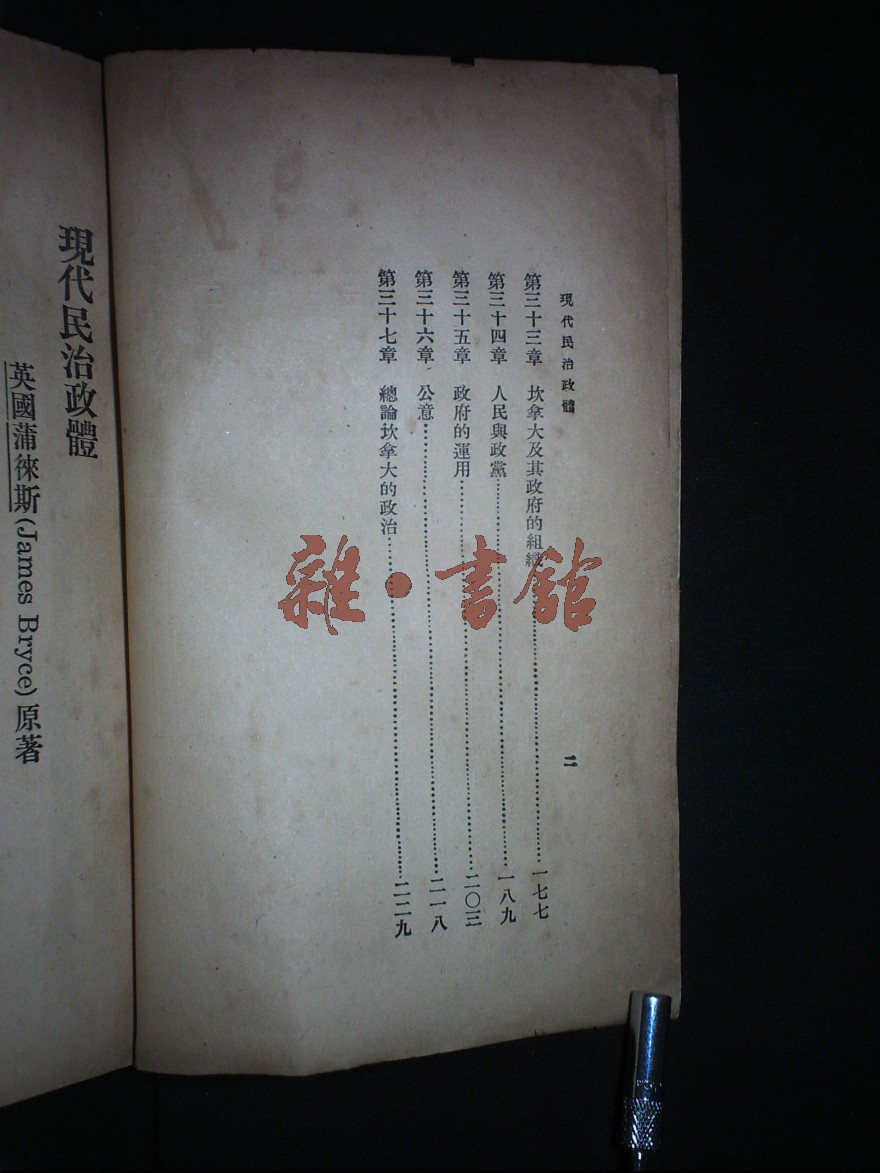 現代民治政體
二
第三十三章 坎拿大及其政府的組織……一七七
第三十四章 人民與政黨……一八九
第三十五章 政府的運用……二〇三
第三十六章 公意……二一八
第三十七章 總論坎拿大的政治……二二九
現代民治政體
英國蒲徠斯(James Bryce)原著
雜·書館